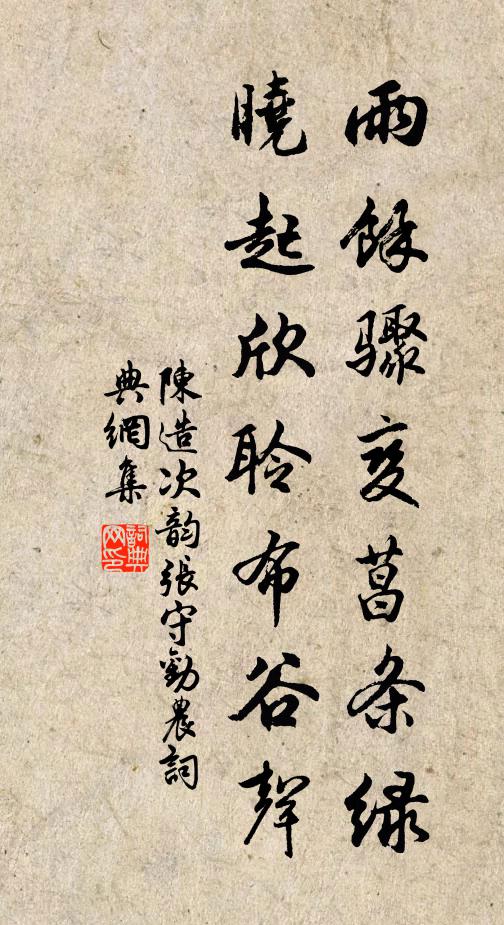 雨餘驟变菖条绿
曉起欣聆布谷聲
陳造次韵張守勸農詞
典網集
詞典网印